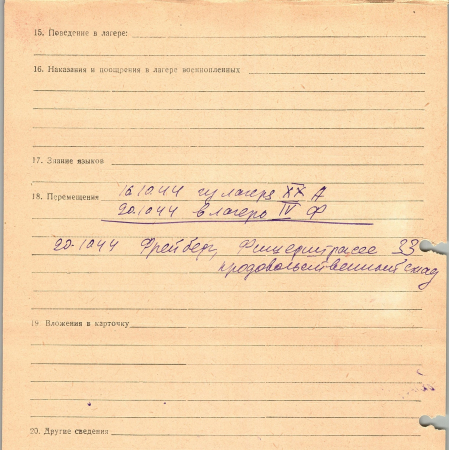 15. Поведение в лагере:
16. Наказания и поощрения в лагере военнопленных
17. Знание языков
18. Перемещения 16.10.44 из лагеря XX А
20.10.44 в лагерь IV Ф
20.10.44 Фрейберг, 33
продовольственный склад
19 Вложения в карточку
20. Другие сведения